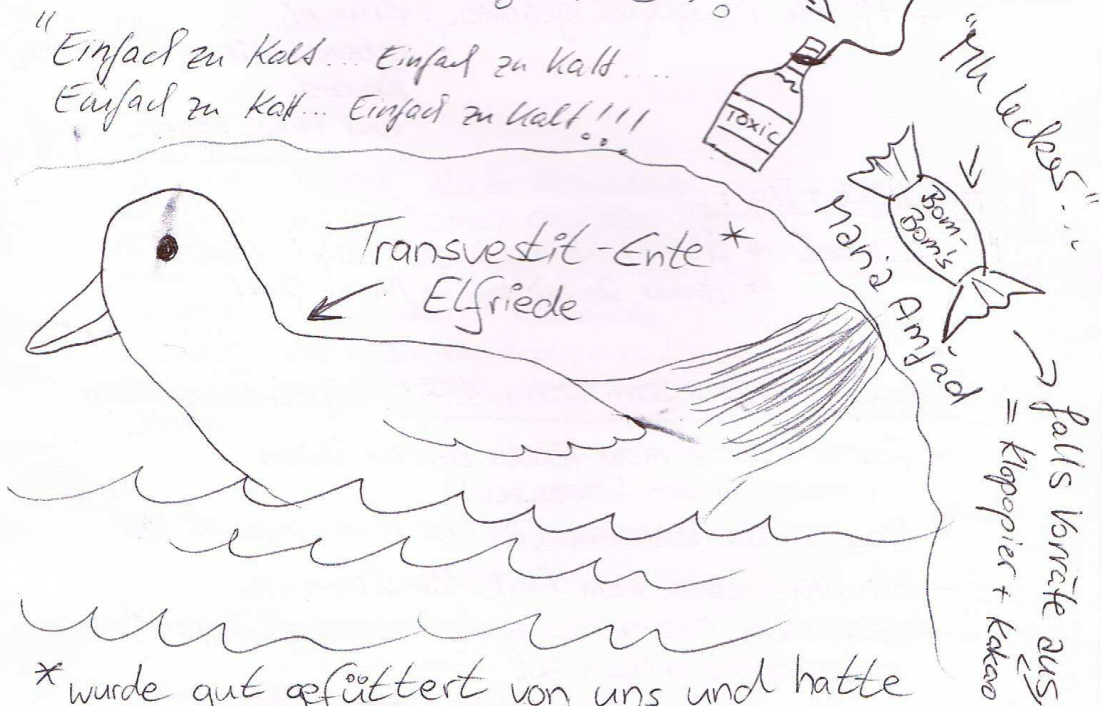 "Einfach zu Kalt... Einfach zu Kalt....
Einfach zu Kalt... Einfach zu Kalt!!!
Toxic
"Mh lecker"...
Bom-
Bom's
Maria Amjad
Transvestit-Ente *
Elfriede
→ falls Vorräte aus
= Klopapier + Kakao
* wurde gut gefüttert von uns und hatte